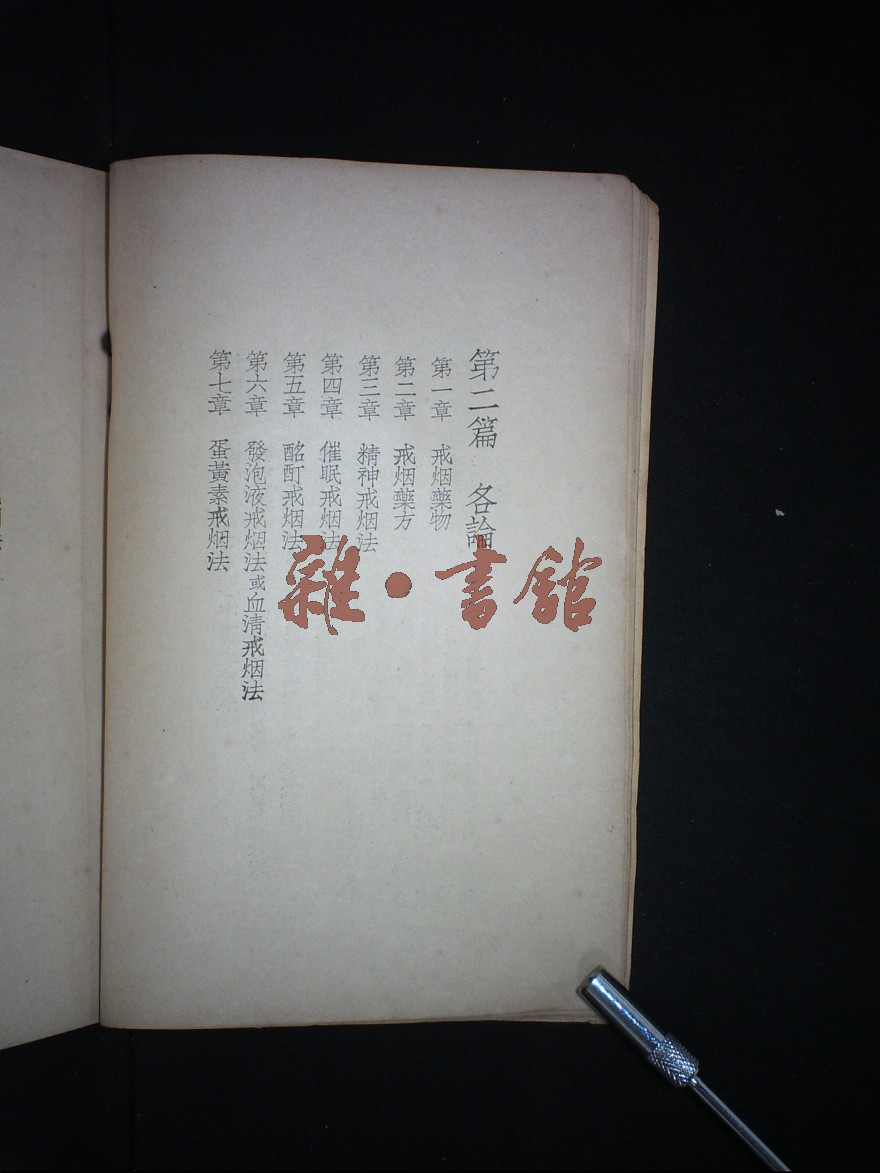 第二篇　各論
第一章　戒烟藥物
第二章　戒烟藥方
第三章　精神戒烟法
第四章　催眠戒烟法
第五章　酩酊戒烟法
第六章　發泡液戒烟法或血清戒烟法
第七章　蛋黃素戒烟法
雜・書館